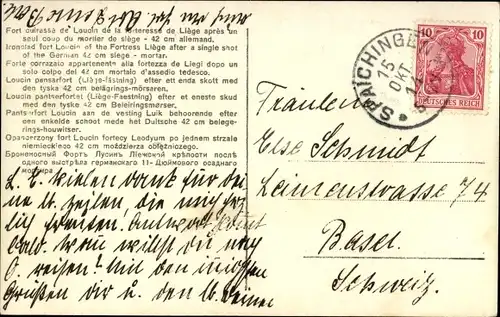 Fort cuirassé de Loucin de la forteresse de Liège après un
seul coup du mortier de siège - 42 cm allemand.
Ironclad fort Loucin of the Fortress Liège after a single shot
of the German 42 cm siege - mortar.
Forte corrazaio appartenente alla fortezza de Liegi dopo un
solo colpo del 42 cm mortaio d'assedio tedesco.
Loucin pansarfort (Liège-fästning) efter ett enda skott med
den tyske 42 cm belägrings-mörsaren.
Loucin pantserfortet (Liège-Faestning) efter et eneste skud
med den tyske 42 cm Beleiringsmørser.
Pantserfort Loucin aan de vesting Luik behoorende efter
een enkelde schoot mede het Duitsche 42 cm belege-
rings-houwitser.
Opancerzony fort Loucin fortecy Leodyum po jednem strzale
niemieckiego 42 cm moździerza oblężniczego.
Броненосный Фортъ Лусинъ Лієжской крѣпости послѣ
одного выстрѣла германскаго 11-Дюймового осаднаго
мортира
SPAICHINGEN
15 OKT
10 10
DEUTSCHES REICH
Fräulein
Else Schmidt
Leimenstrasse 74
Basel
Schweiz.
L. E. vielen Dank für dei-
ne lb. Zeilen, die mich herz-
lich freuten. Antwort
bald. Wann willst du nach
O. reisen? Mit den innigsten
Grüßen dir u. den lb. deinen